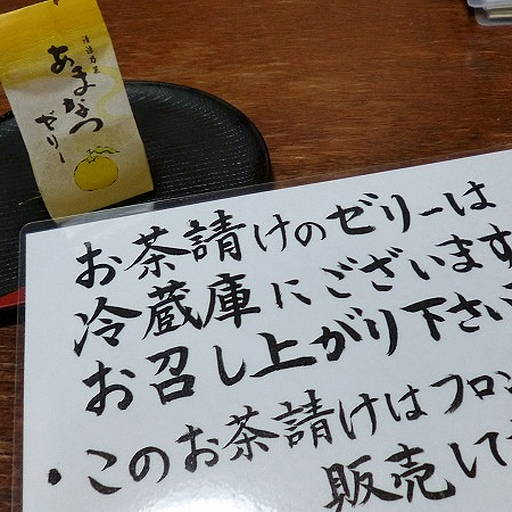 あまなつ
ゼリー
お茶請けのゼリーは
冷蔵庫にございます
お召し上がり下さい
・このお茶請けはフロン
販売して